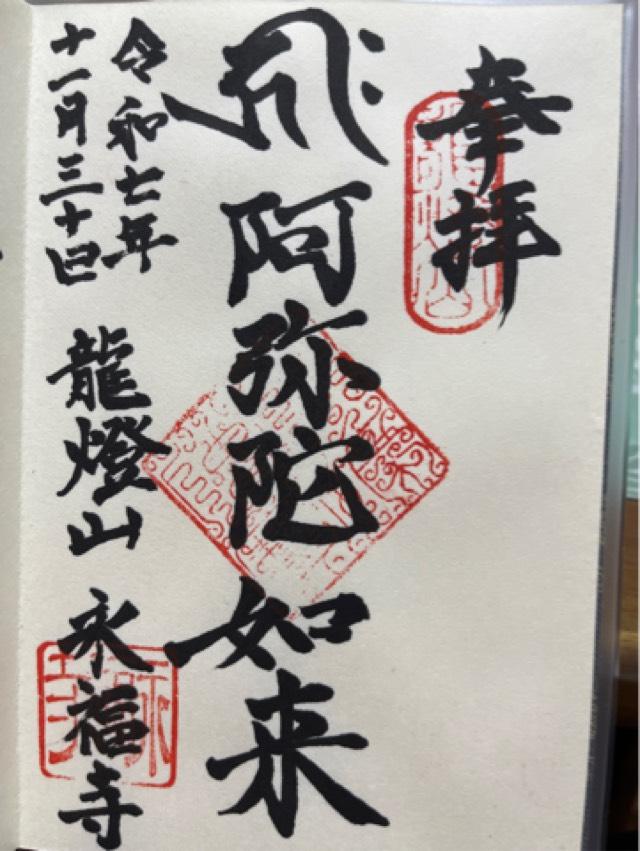 奉拝
阿弥陀如来
令和七年
十一月三十日
龍燈山 永福寺